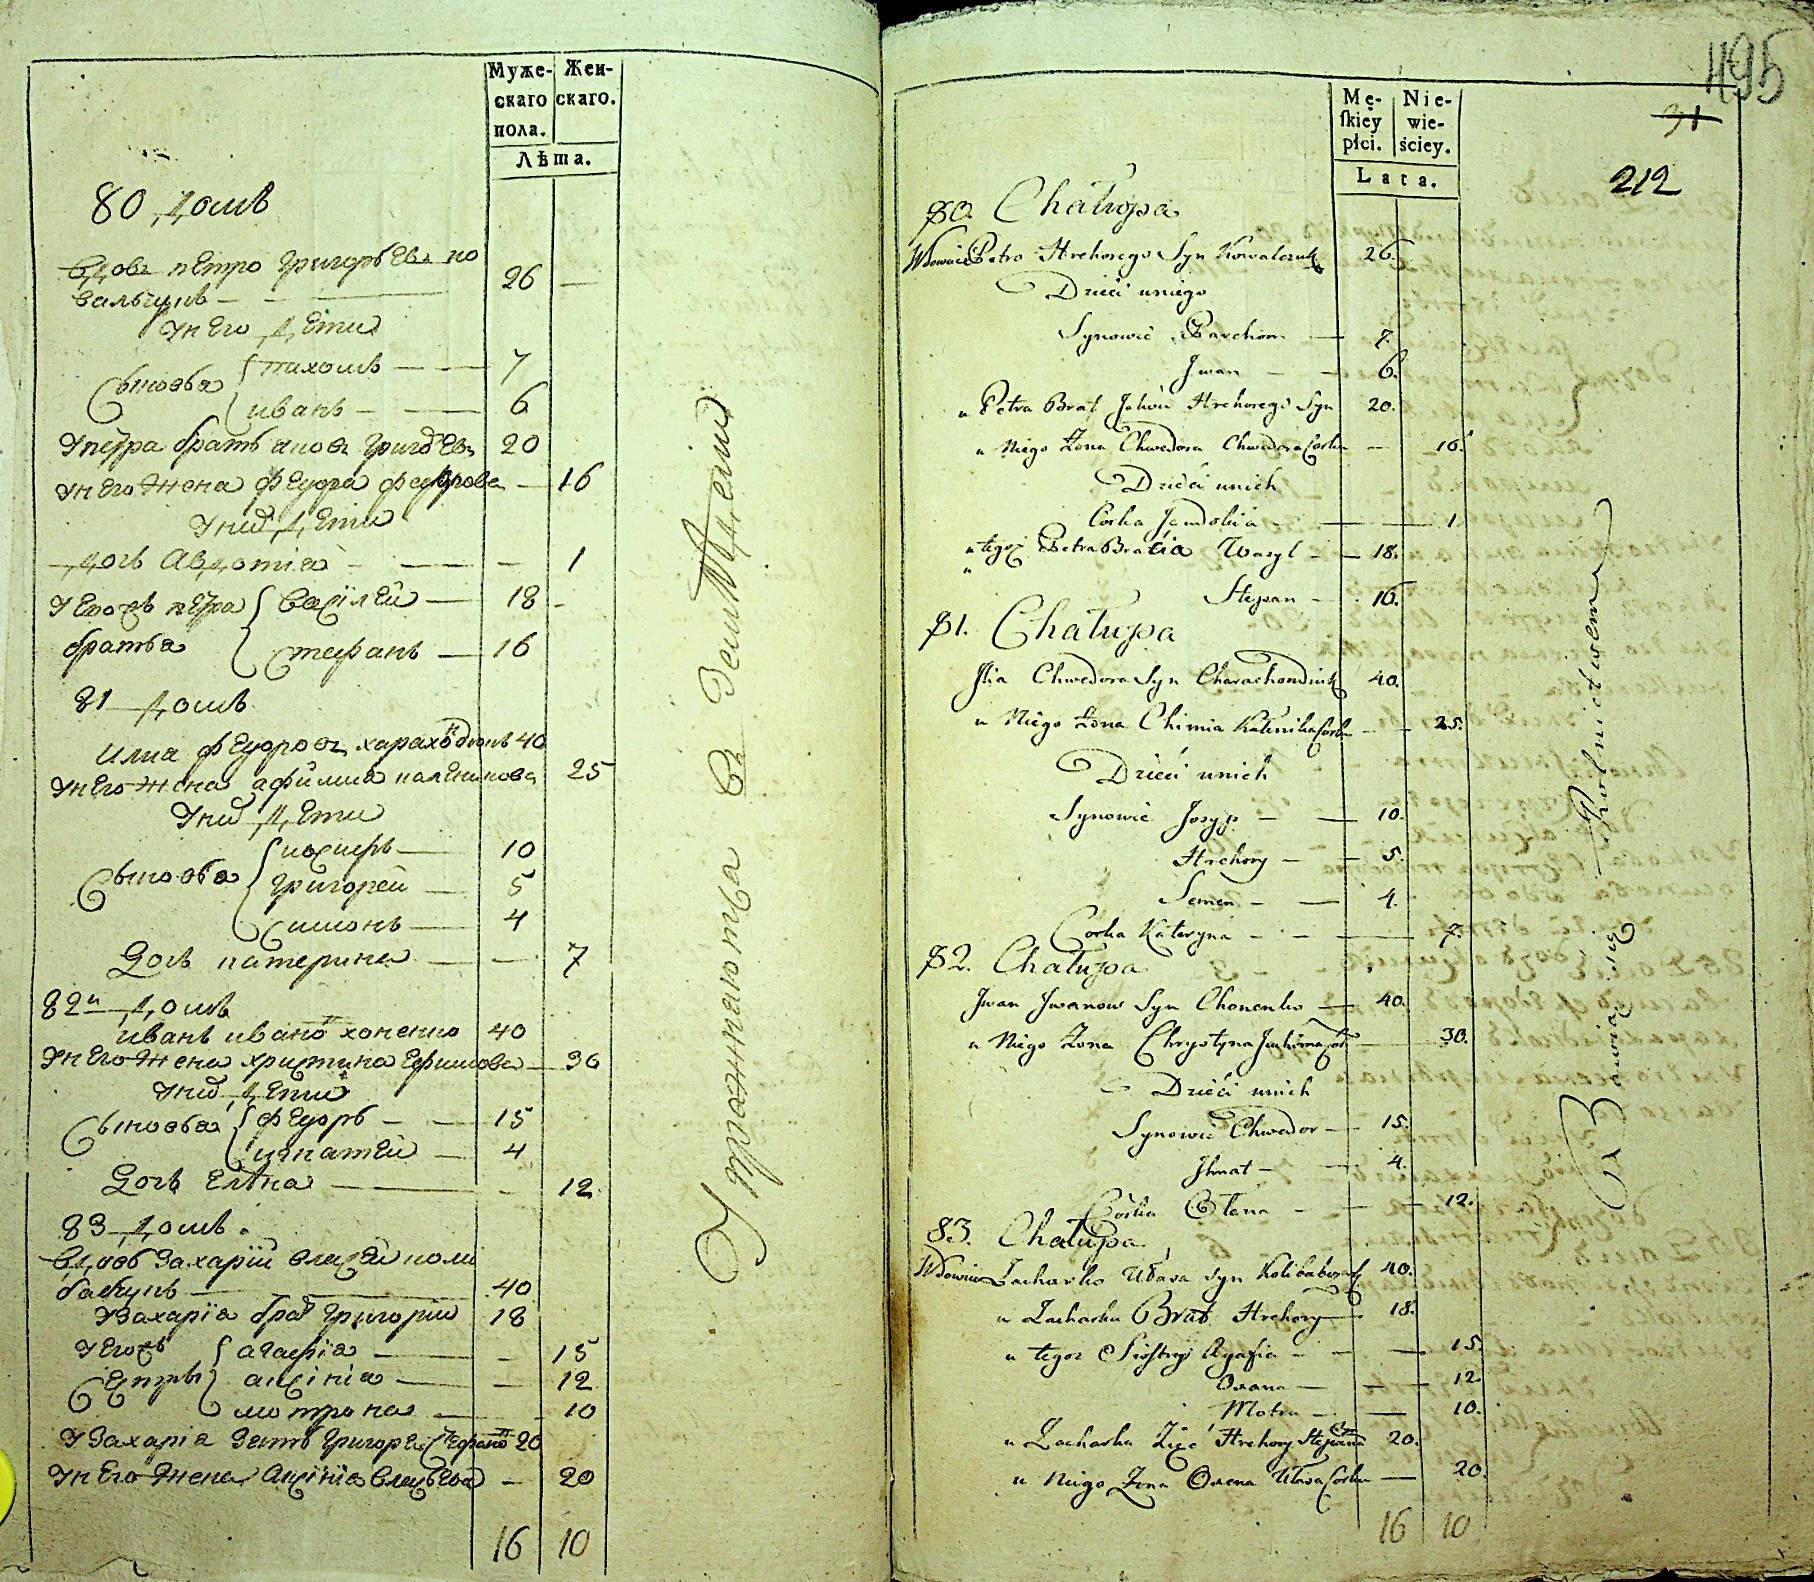 Муже-
скаго
пола.
Жен-
скаго.
Лѣта.
80 домъ
вдовъ петро григорьевъ ко
вальчукъ 26
унего дети
Сыновья пахомъ 7
иванъ 6
упетра братъ яковъ григорьевъ 20
унего жена феудора федорова 16
унихъ дети
дочь Авдотиа 1
Утогожъ петра братья василей 18
Стефанъ 16
81 домъ
илиа феудоровъ 40
унего жена афимиа каленикова 25
унихъ дети
Сыновья иосиеръ 10
григорей 5
Симонъ 4
Дочь катерина 7
82й домъ
иванъ ивановъ хоненко 40
унего жена христина Ефимова 30
унихъ дети
Сыновья феудоръ 15
игнатей 4
Дочь Елена 12
83 домъ.
вдовъ Захарiй власей коли
бабчукъ 40
уЗахарiа братъ григорий 18
Утогожъ Сестры агафiа 15
аксiнiа 12
мотрона 10
УЗахарiа зять григорей Стефановъ 20
Унего жена Аксiнiа власьева 20
16 10
Упражняются въ Земледелии
495
31
212
Mę-
skiey
płci.
Nie-
wie-
ściey.
Lata.
80. Chałupa
Wdowiec Petro Hrehorego Syn Kowalczuk 26.
Dzieci uniego
Synowie Parchom 7.
Jwan 6.
u Petra Brat Jakow Hrehorego Syn 20.
u Niego Żona Chwedora Chwedora Corka 16.
Dzieci unich
Corka Jewdokia 1.
u tegoż Petra Bracia Wasyl 18.
Stepan 16.
81. Chałupa
Jlia Chwedora Syn Charachondiuk 40.
u Niego Żona Chimia Kalenika Corka 25.
Dzieci unich
Synowie Josyp 10.
Hrehory 5.
Semen 4.
Corka Kateryna 7.
82. Chałupa
Jwan Jwanow Syn Chonenko 40.
u Niego Żona Chrystyna Juchima Cor 30.
Dzieci unich
Synowie Chwedor 15.
Jhnat 4.
Córka Ołena 12.
83. Chałupa
Wdowiec Zacharko Własa Syn Kolibabczuk 40.
u Zacharka Brat Hrehory 18.
u tegoż Siostry Agafia 15.
Oxana 12
Motra 10.
u Zacharka Zięć Hrehory Stepana Syn 20.
u Niego Żona Oxena Własa Corka 20.
16 10
Bawią się Rolnictwem